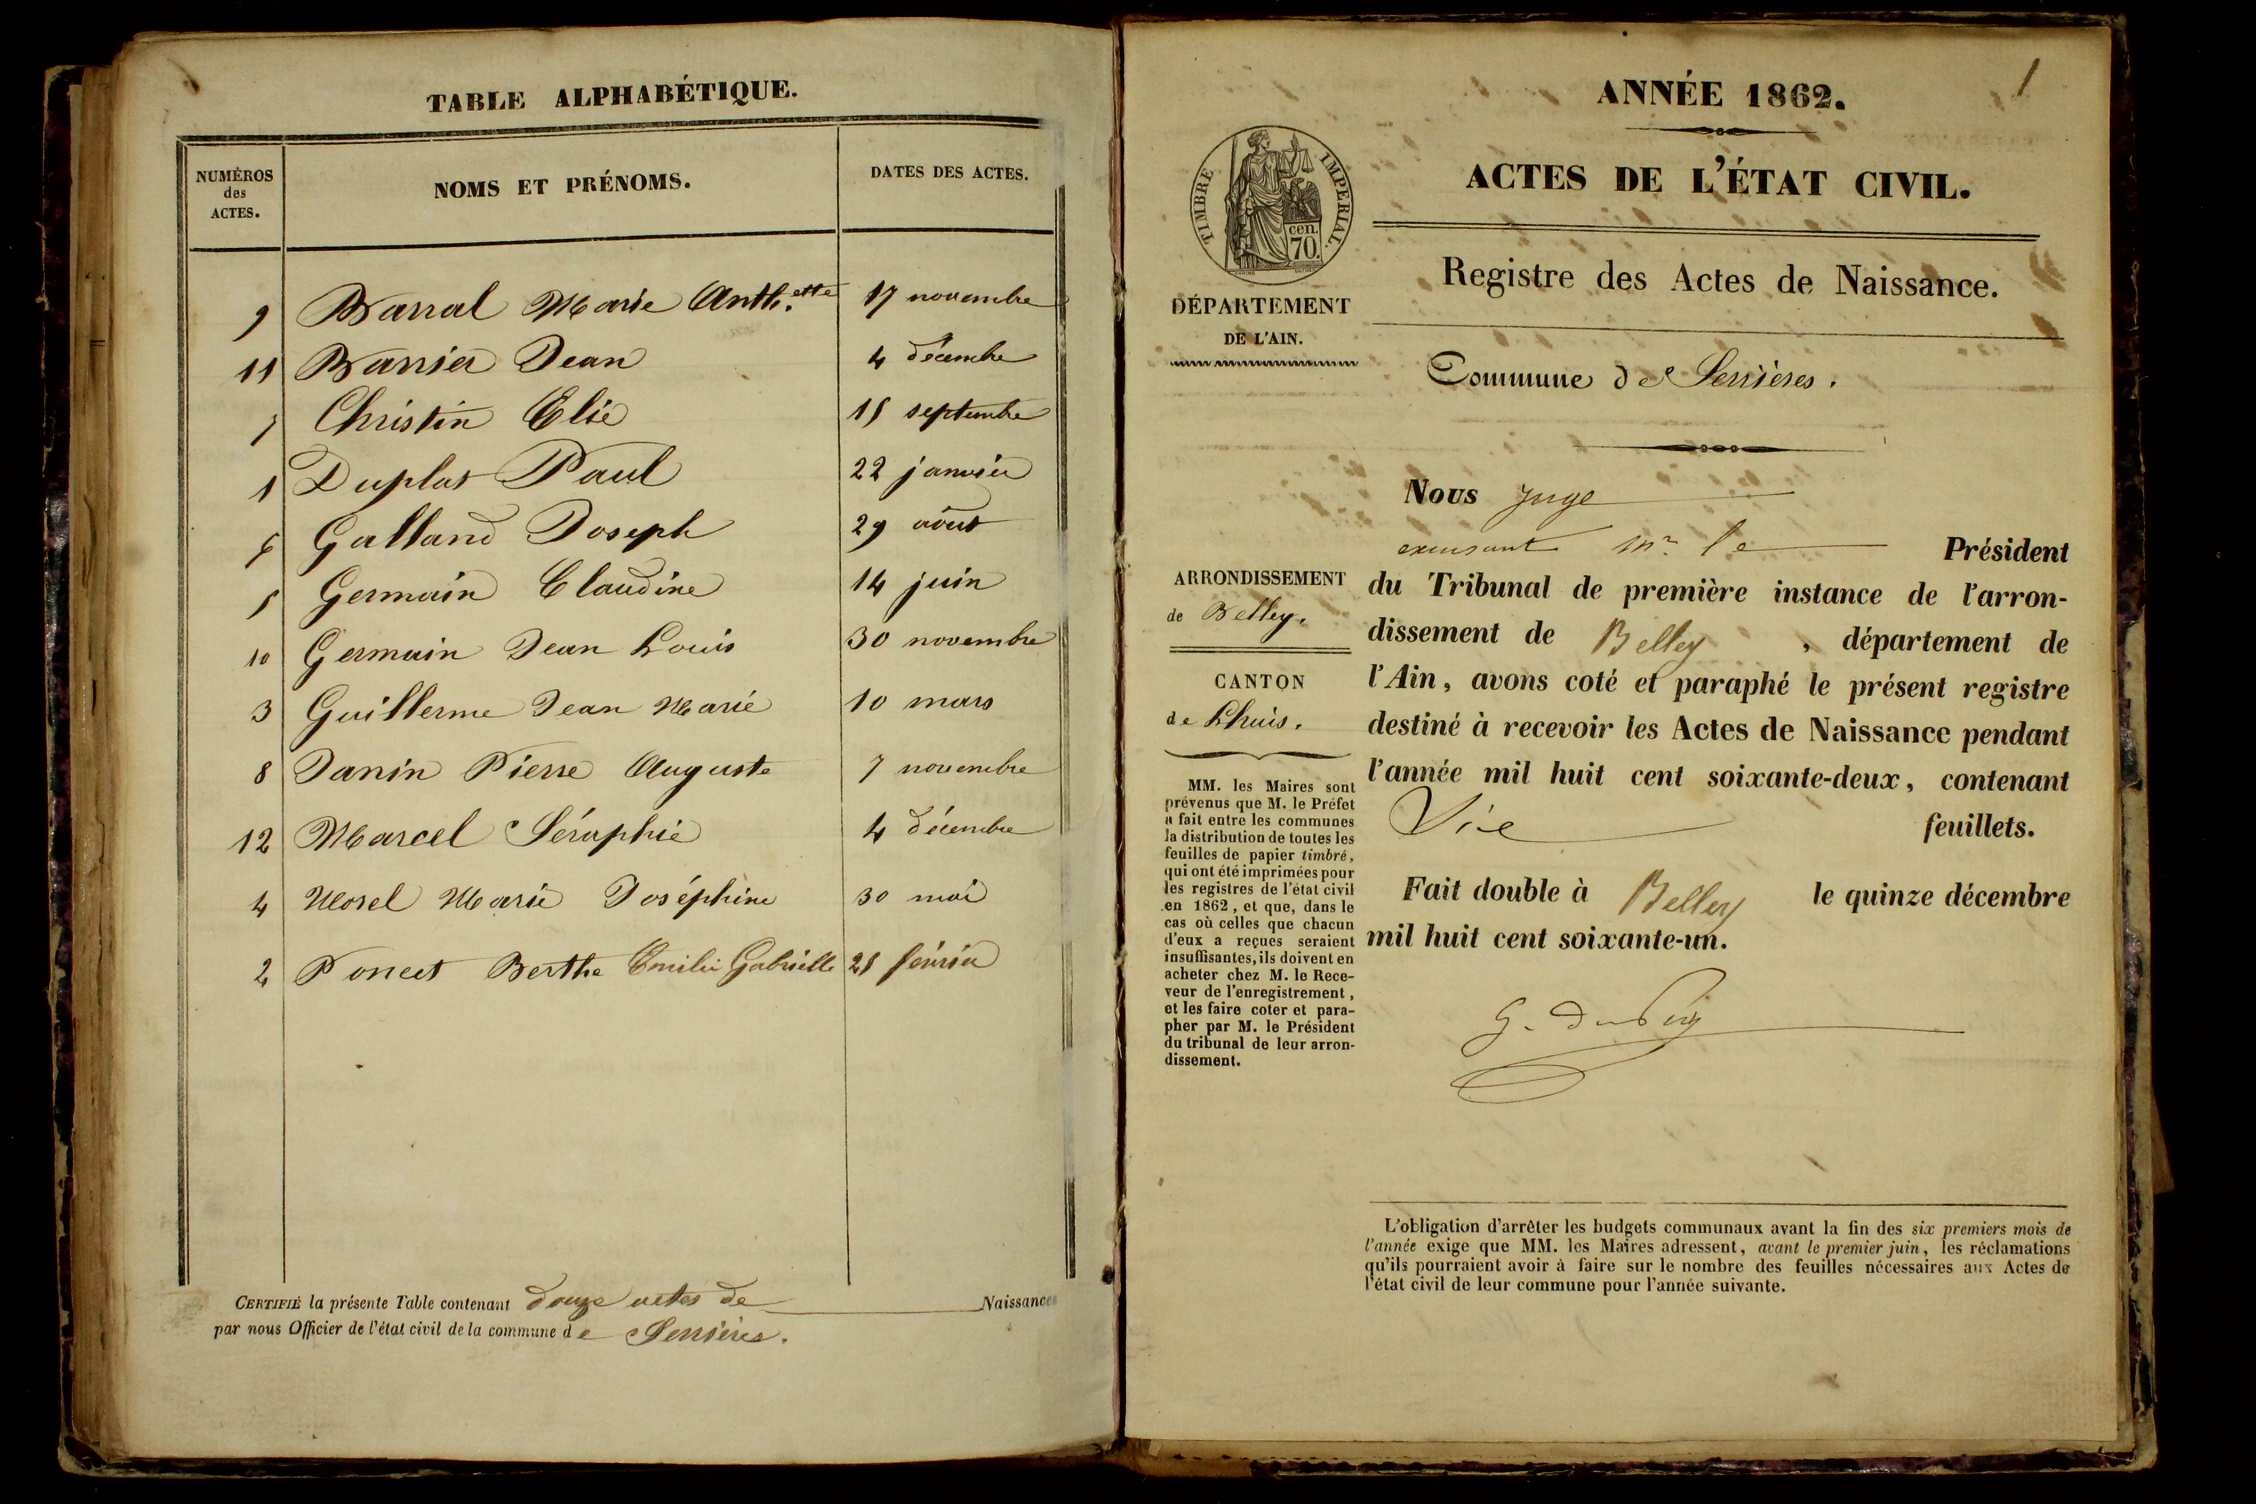 TABLE ALPHABÉTIQUE.
NUMÉROS des ACTES. NOMS ET PRÉNOMS. DATES DES ACTES.
9 Barral Marie Anth.ette 17 novembre
11 Barrier Jean 4 décembre
7 Christin Elie 15 septembre
1 Duplat Paul 22 janvier
6 Galland Joseph 29 août
5 Germain Claudine 14 juin
10 Germain Jean Louis 30 novembre
3 Guillerme Jean Marie 10 mars
8 Janin Pierre Auguste 7 novembre
12 Marcel Séraphie 4 décembre
4 Morel Marie Joséphine 30 mai
2 Poncet Berthe Emilie Gabrielle 25 février
CERTIFIÉ la présente Table contenant douze actes de Naissances
par nous Officier de l'état civil de la commune de Serrières.
1
ANNÉE 1862.
ACTES DE L'ÉTAT CIVIL.
TIMBRE IMPÉRIAL.
cen.
70.
Registre des Actes de Naissance.
DÉPARTEMENT
DE L'AIN.
Commune de Serrières.
ARRONDISSEMENT
de Belley.
CANTON
de Lhuis.
MM. les Maires sont
prévenus que M. le Préfet
a fait entre les communes
la distribution de toutes les
feuilles de papier timbré,
qui ont été imprimées pour
les registres de l'état civil
en 1862, et que, dans le
cas où celles que chacun
d'eux a reçues seraient
insuffisantes, ils doivent en
acheter chez M. le Rece-
veur de l'enregistrement,
et les faire coter et para-
pher par M. le Président
du tribunal de leur arron-
dissement.
Nous Juge
excusant Mr le Président
du Tribunal de première instance de l'arron-
dissement de Belley, département de
l'Ain, avons coté et paraphé le présent registre
destiné à recevoir les Actes de Naissance pendant
l'année mil huit cent soixante-deux, contenant
feuillets.
Fait double à Belley le quinze décembre
mil huit cent soixante-un.
L'obligation d'arrêter les budgets communaux avant la fin des six premiers mois de
l'année exige que MM. les Maires adressent, avant le premier juin, les réclamations
qu'ils pourraient avoir à faire sur le nombre des feuilles nécessaires aux Actes de
l'état civil de leur commune pour l'année suivante.